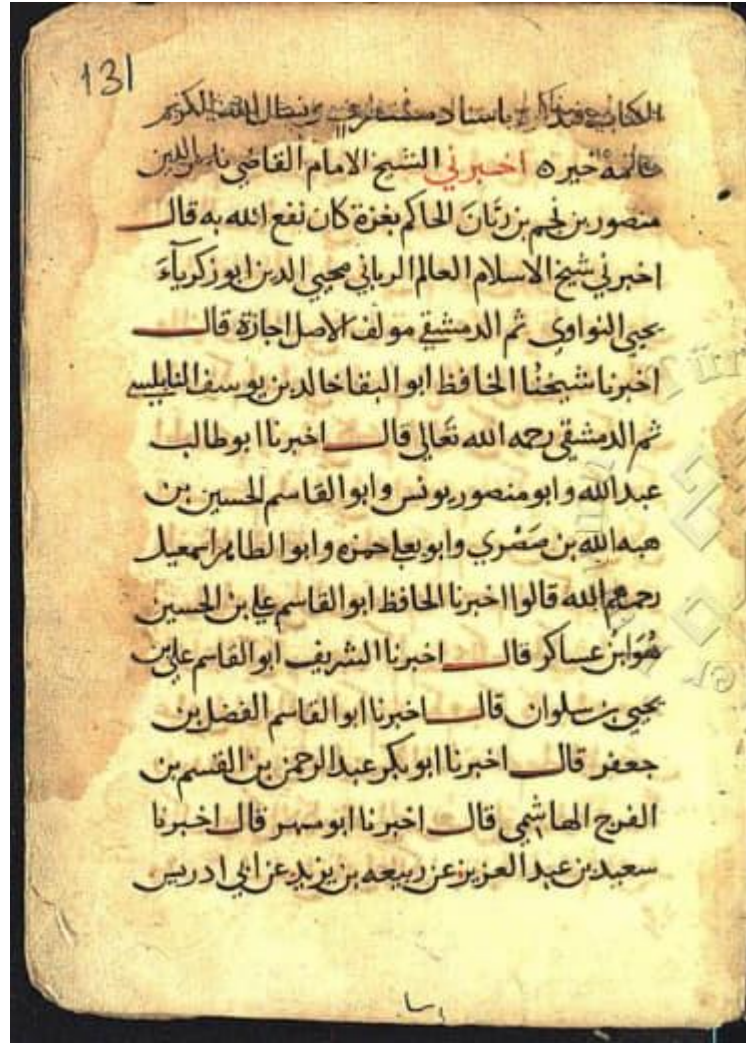 131
الكتاب باسناد الكريم
خاتمه خيره اخبرني الشيخ الامام القاضي ناصر الدين
منصور بن نجم بن زبان الحاكم بغزة كان نفع الله به قال
اخبرني شيخ الاسلام العالم الرباني محيي الدين ابو زكرياء
يحيى النواوي ثم الدمشقي مولف الاصل اجازة قال
اخبرنا شيخنا الحافظ ابو البقا خالد بن يوسف النابلسي
ثم الدمشقي رحمه الله تعالى قال اخبرنا ابو طالب
عبد الله وابو منصور يونس وابو القاسم الحسين بن
هبه الله بن صصري وابو يعلى حمزه وابو الطاهر اسمعيل
رحمهم الله قالوا اخبرنا الحافظ ابو القاسم علي بن الحسين
هو ابن عساكر قال اخبرنا الشريف ابو القاسم علي بن
يحيى بن سلوان قال اخبرنا ابو القاسم الفضل بن
جعفر قال اخبرنا ابو بكر عبد الرحمن بن القسم بن
الفرج الهاشمي قال اخبرنا ابو مسهر قال اخبرنا
سعيد بن عبد العزيز عن ربيعه بن يزيد عن ابي ادريس